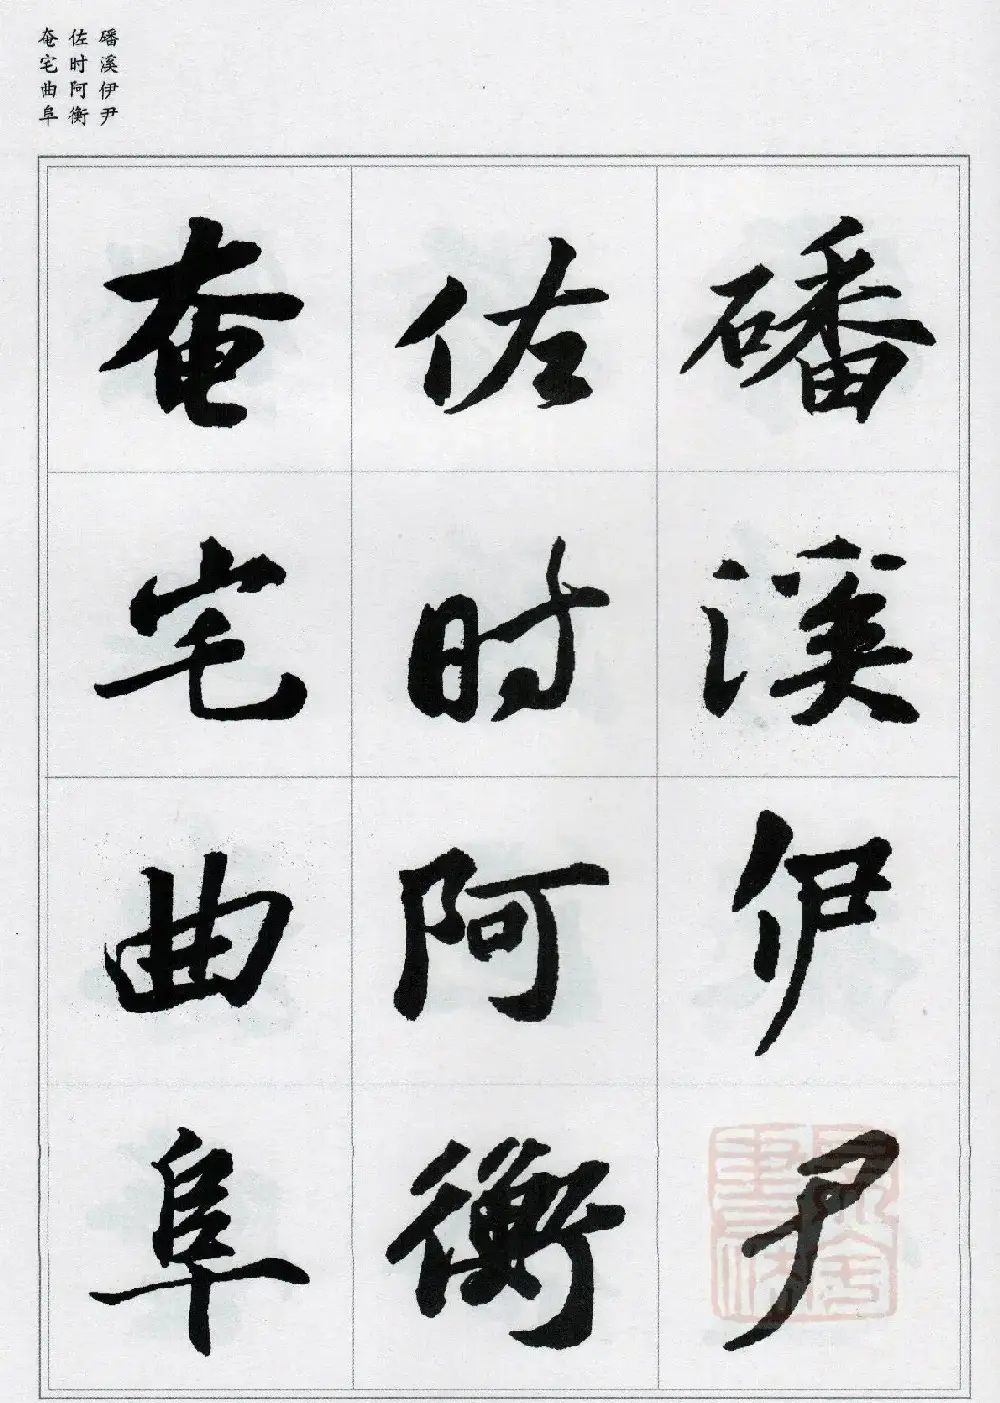 磻溪伊尹
佐时阿衡
奄宅曲阜
磻溪伊尹
佐时阿衡
奄宅曲阜